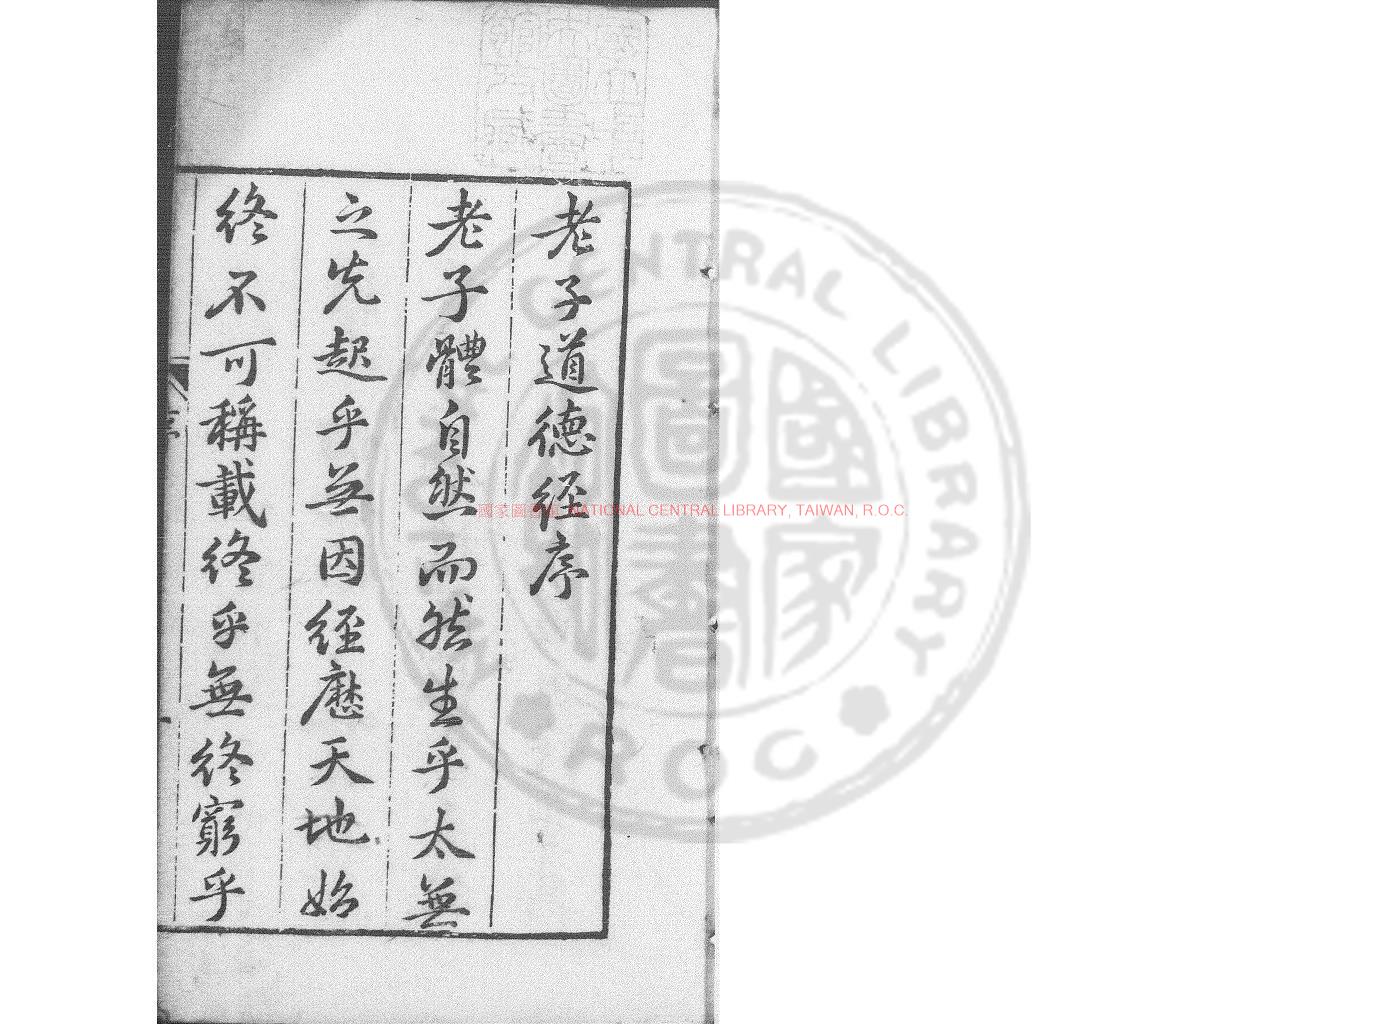 老子道德經序
老子體自然而然生乎太無
之先起乎無因經歷天地始
終不可稱載終乎無終窮乎
序
國家圖書館 NATIONAL CENTRAL LIBRARY, TAIWAN, R.O.C.
CENTRAL LIBRARY
R O C
國家圖書